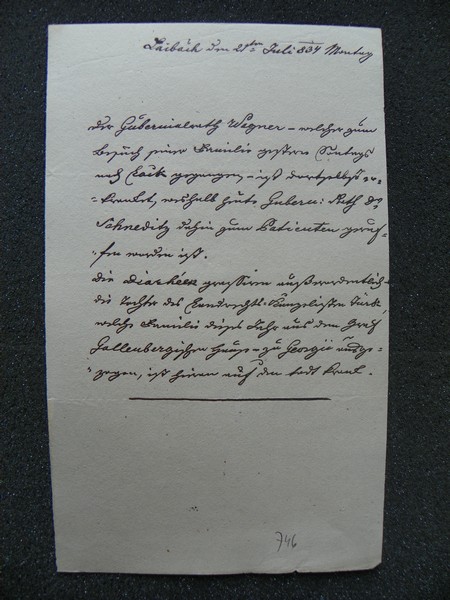 Laibach den 21ten Juli 834 Montag
Der Gubernialrath Wagner – welcher zum
Besuch seiner Familie gestern Sontags
nach Laik gegangen – ist dortselbst er-
kranket, weshalb heute Gubern: Rath Dr
Schneditz dahin zum Patienten geruf-
fen worden ist.
Die Diarhöen grassiren außerordentlich
die Tochter des Landrechts-Kanzelisten
welche Familie dieses Jahr aus dem Graf
Gallenbergischen Hause – zu Georgi ausge-
zogen, ist hieran auf den todt krank.
746